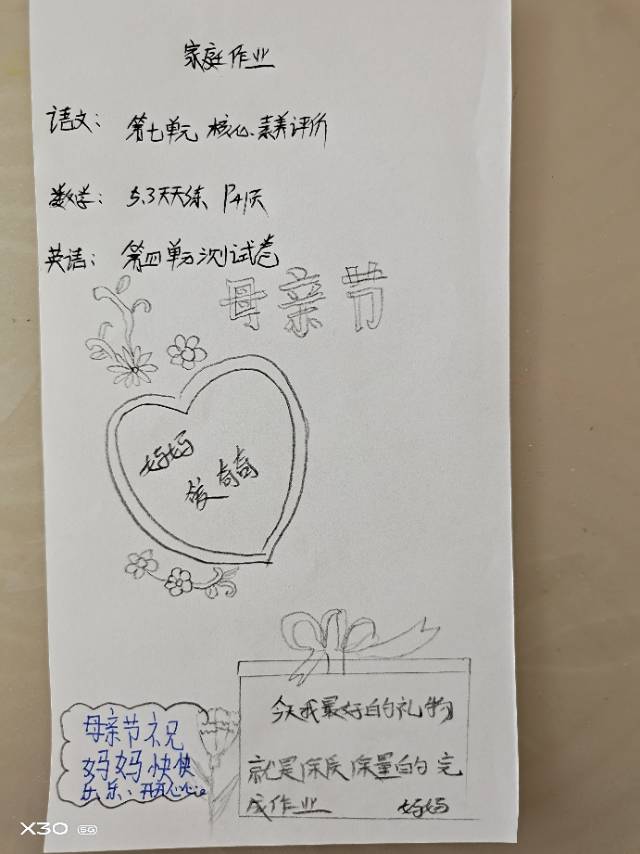 家庭作业
语文： 第七单元 核心素养评价
数学： 5.3天天练 P41页
英语： 第四单元测试卷
母亲节
妈妈
奇奇
母亲节祝
妈妈快快
乐乐、开开心心。
今天我最好的礼物
就是保质保量的完
成作业 妈妈
X30 5G